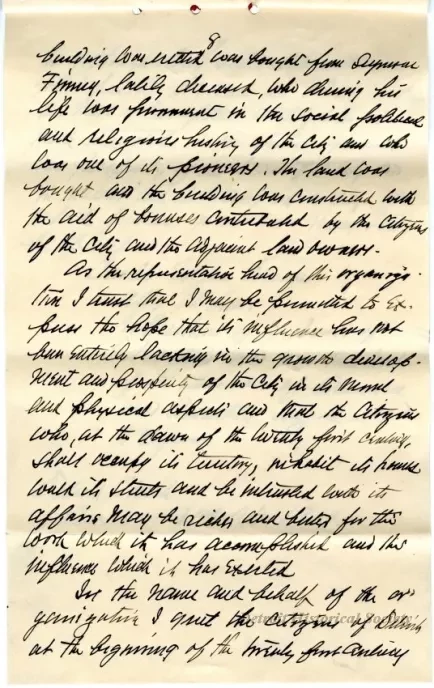 8
building was erected was bought from Seymour
Finney, lately deceased, who during his
life was prominent in the social political
and religious history of the City and who
was one of its pioneers. The land was
bought and the building was constructed with
the aid of bonuses contributed by the Citizens
of the City and the adjacent land owners.
As the representative head of this organiza-
tion I trust that I may be permitted to ex-
press the hope that its influence has not
been entirely lacking in the growth develop-
ment and prosperity of the City in its moral
and physical aspects and that the Citizens
who, at the dawn of the twenty first century,
shall occupy its territory, inhabit its homes
walk its streets and be intrusted with its
affairs may be richer and better for the
work which it has accomplished and the
influence which it has exerted
In the name and behalf of the or-
ganization I greet the Citizens of Detroit
at the beginning of the twenty first century
Detroit Historical Society